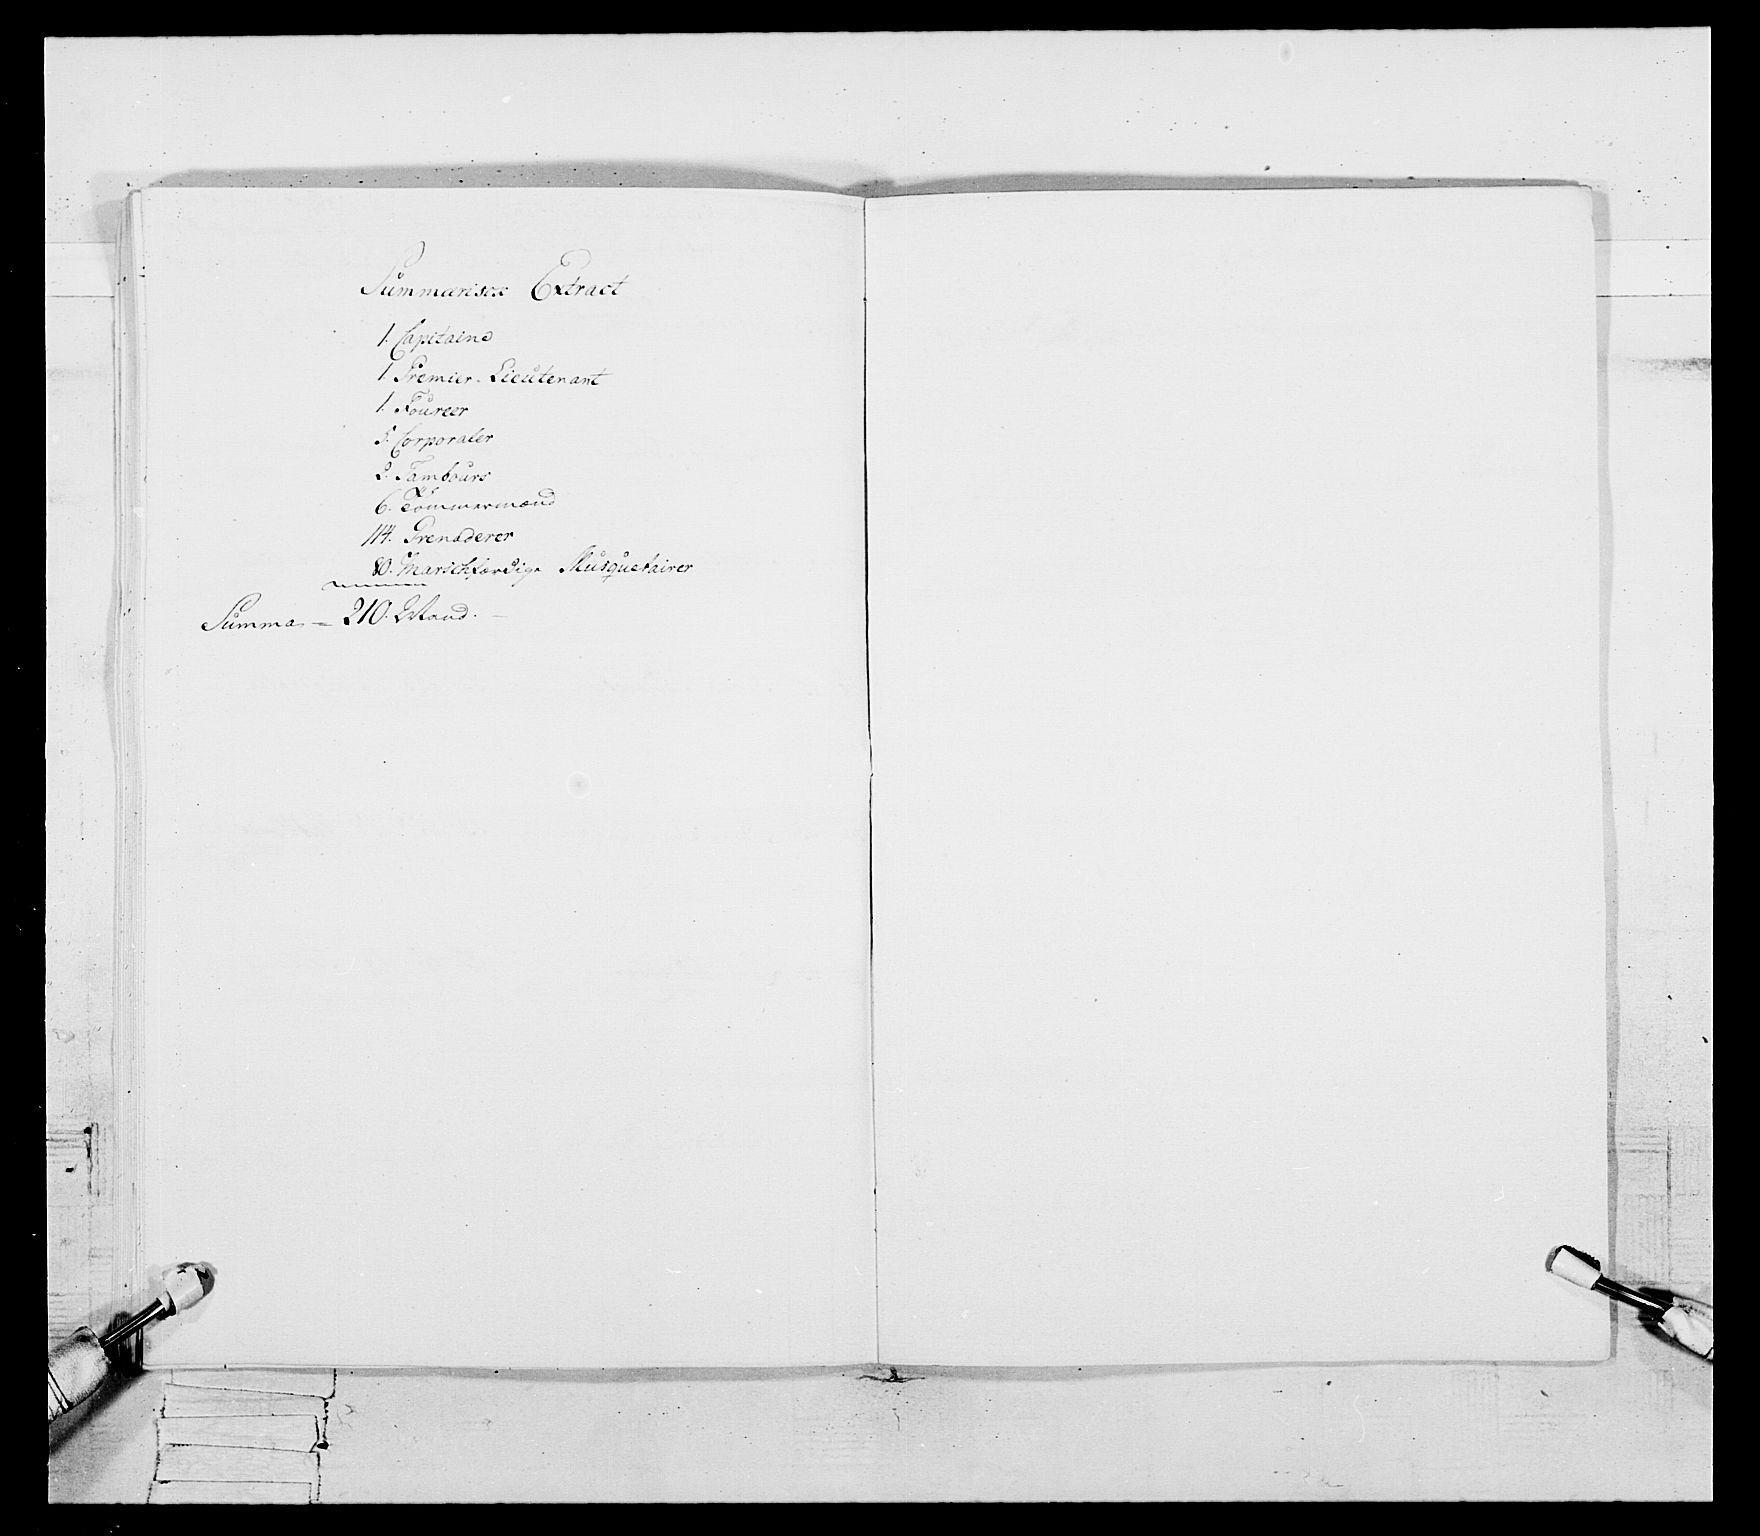 Summarisk Extract
1. Capitaine
1. Premier-Lieutenant
1. Foureer
5. Corporaler
2. Tambours
6. Tömmermænd
114. Grenaderer
80. Marschfærdige Musquetairer
Summa = 210. Mand. —